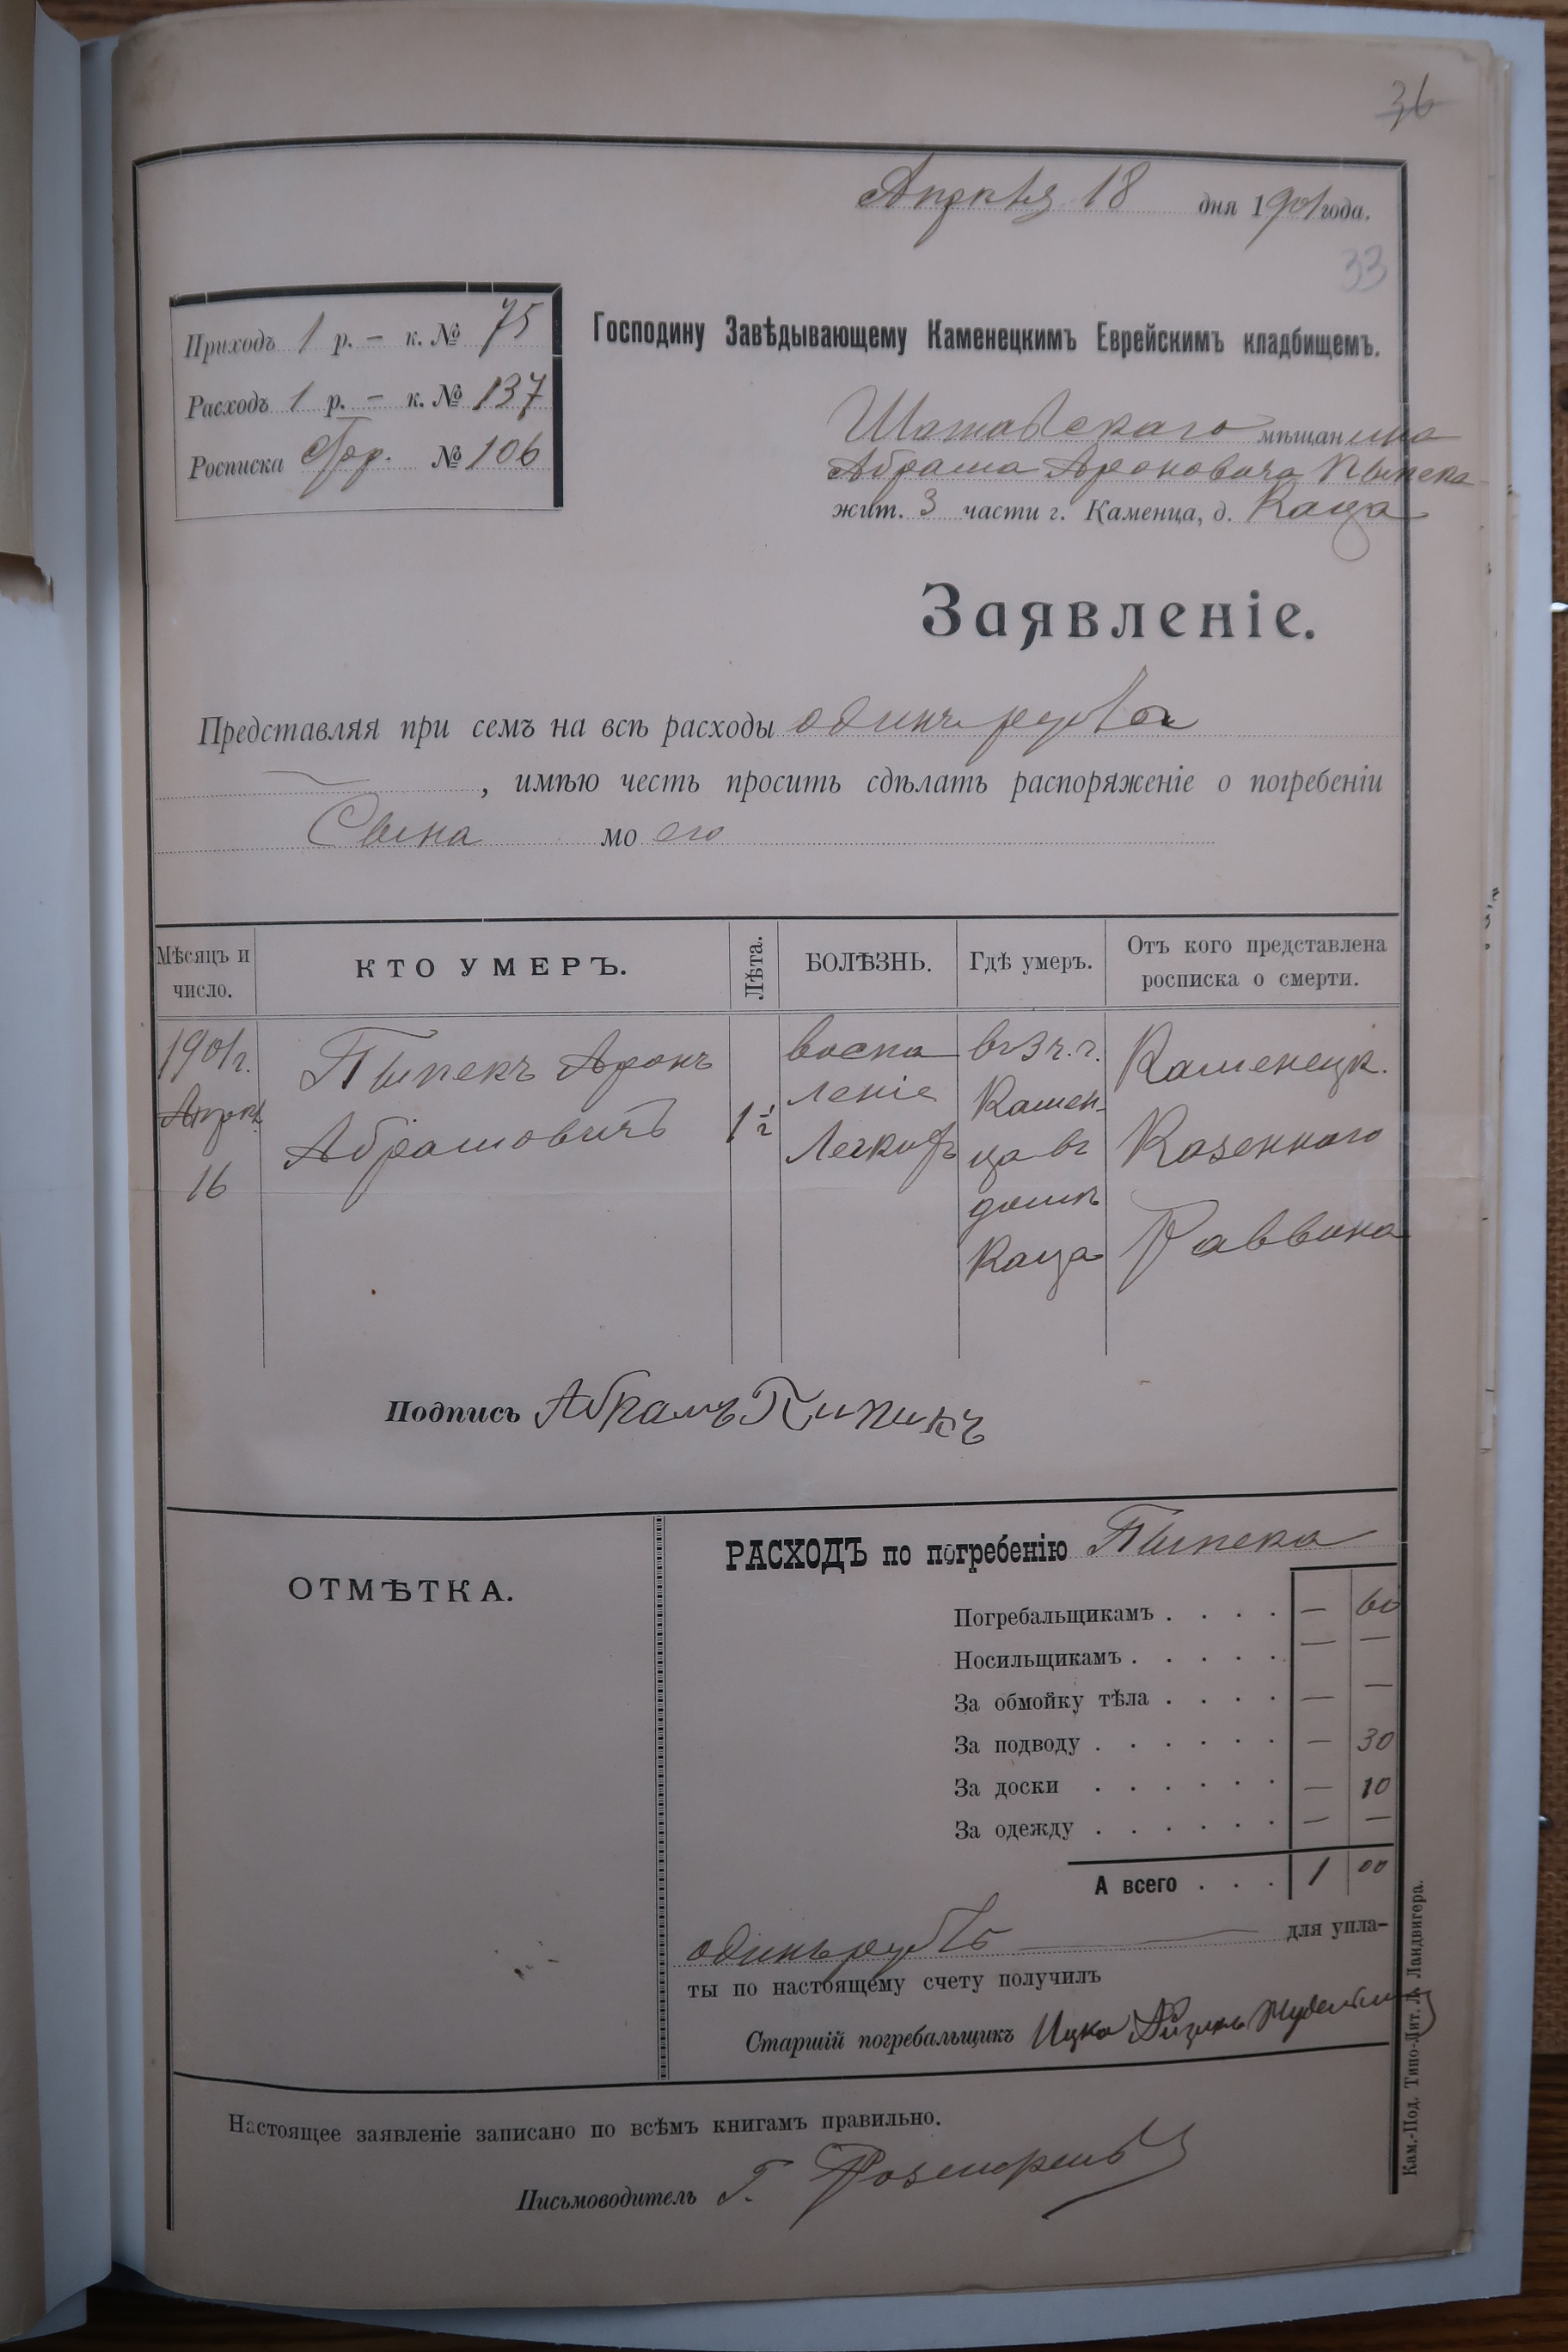 36
Апрѣля 18 дня 1901 года.
33
Приходъ 1 р. – к. № 75
Расходъ 1 р. – к. № 137
Росписка № 106
Господину Завѣдывающему Каменецкимъ Еврейскимъ кладбищемъ.
Шатавскаго мѣщанина
Абрама Ароновича Пыпека
жит. 3 части г. Каменца, д. Каца
Заявленіе.
Представляя при семъ на всѣ расходы одинъ рубль
, имѣю честь просить сдѣлать распоряженіе о погребеніи
Сына моего
Мѣсяцъ и число.
КТО УМЕРЪ.
Лѣта.
БОЛѢЗНЬ.
Гдѣ умеръ.
Отъ кого представлена росписка о смерти.
1901 г.
Апрѣл
16
Пыпекъ Аронъ
Абрамовичъ
1 ½
воспа
леніе
Легкихъ
въ 3 ч. г.
Камен-
ца въ
домѣ
Каца
Каменецк.
Казеннаго
Раввина
Подпись Абрамъ Пипикъ
ОТМѢТКА.
РАСХОДЪ по погребенію Пыпека
Погребальщикамъ . . . . — 60
Носильщикамъ . . . . . — —
За обмойку тѣла . . . . — —
За подводу . . . . . . — 30
За доски . . . . . . — 10
За одежду . . . . . . — —
А всего . . . 1 00
одинъ рубль — для упла-
ты по настоящему счету получилъ
Старшій погребальщикъ Ицко Айзикъ
Настоящее заявленіе записано по всѣмъ книгамъ правильно.
Письмоводитель Г.
Кам.-Под. Типо-Лит. Л. Ландвигера.